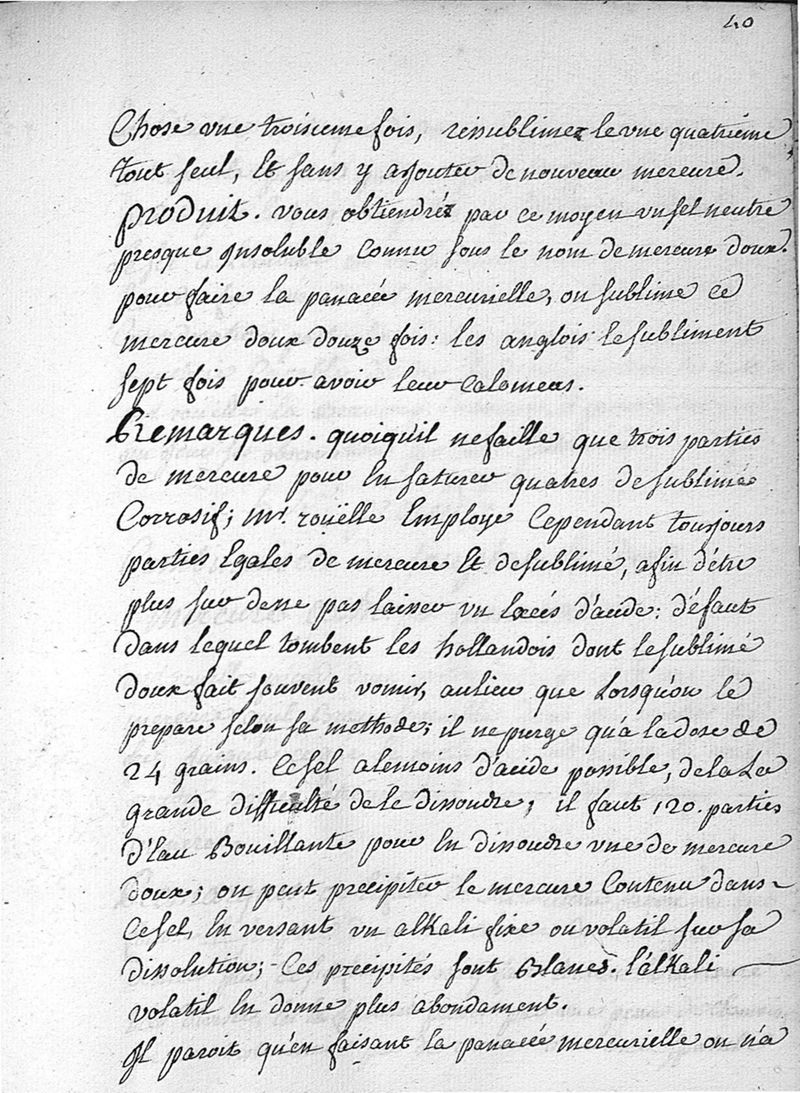 40
Chose vne troisieme fois, resublimez le vne quatriéme
tout seul, Et sans y ajouter de nouveau mercure.
produit. vous obtiendréz par ce moyen vn sel neutre
presque jnsoluble Connu sous le nom de mercure doux.
pour faire la panacée mercurielle, on sublime ce
mercure doux douze fois: les anglois le subliment
sept fois pour avoir leur Calomeas.
Remarques. quoiqu'il ne faille que trois parties
de mercure pour En saturer quatres de sublimé
Corrosif; Mr. roüelle Employe Cependant toujours
parties Egales de mercure Et de sublimé, afin d'être
plus sur de ne pas laisser vn Excés d'acide: défaut
dans lequel tombent les hollandois dont le sublimé
doux fait souvent vomir, aulieu que Lorsqu'on le
prepare selon sa methode; il ne purge qu'a la dose de
24 grains. Ce sel a le moins d'acide possible, de la La
grande difficulté de le dissoudre; il faut 120. parties
d'Eau Bouillante pour En dissoudre vne de mercure
doux; on peut precipiter le mercure Contenu dans
Ce sel, En versant vn alkali fixe ou volatil sur sa
dissolution; Ces precipités sont Blancs. l'alkali
volatil En donne plus abondament.
Jl paroit qu'en faisant la panacée mercurielle on n'a